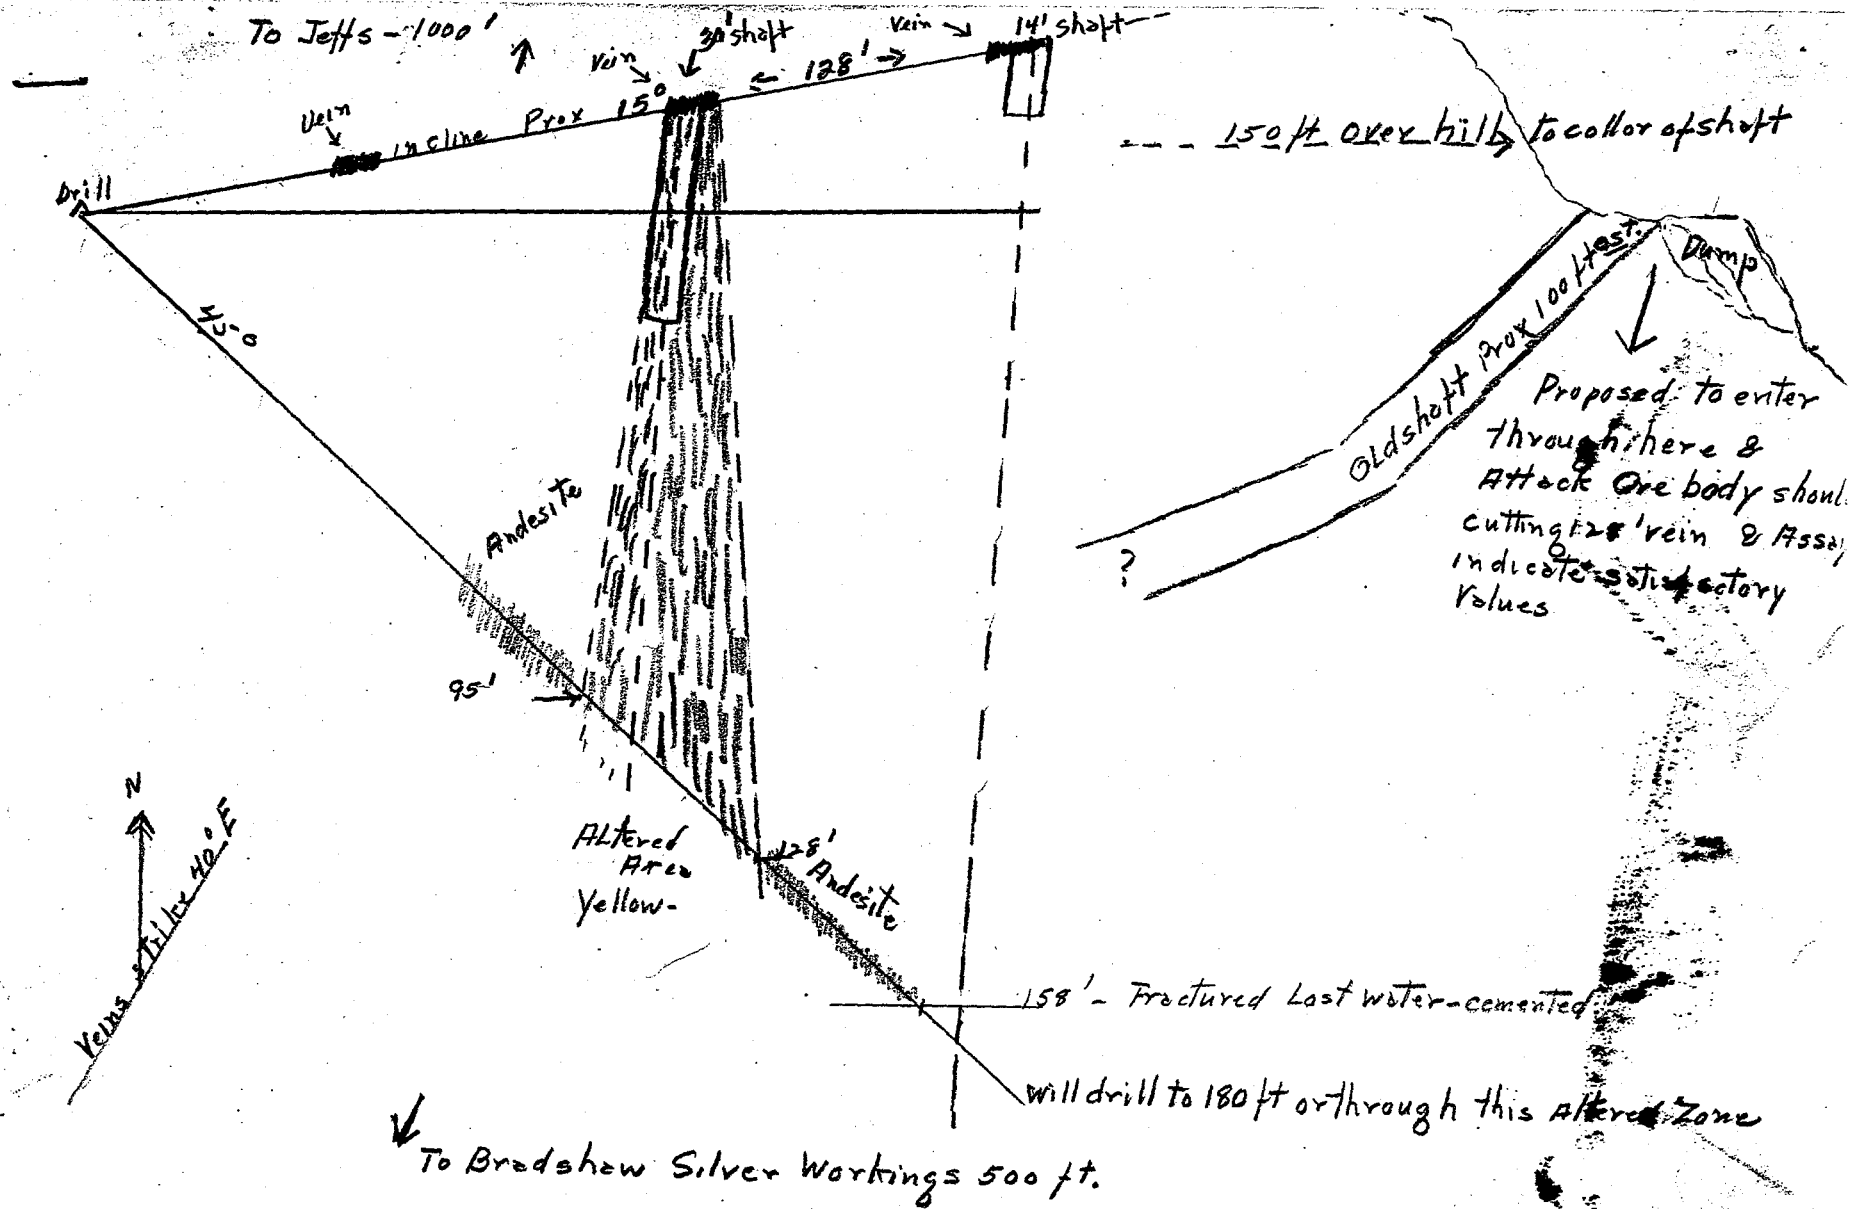 To Jeffs - 1000'
vein
30' shaft
vein
14' shaft
← 128' →
vein
incline Prox 15°
Drill
150 ft over hill to collor of shaft
45°
Old shaft Prox 100 ft est.
Dump
Proposed to enter
through here &
Attack Ore body shoul
cutting 128' vein & Assay
indicate satisfactory
Values
?
Andesite
95'
N
Veins strike 40° E
Altered
Area
Yellow-
128'
Andesite
158' - Fractured Lost water-cemented
will drill to 180 ft or through this Altered Zone
To Bradshaw Silver Workings 500 ft.